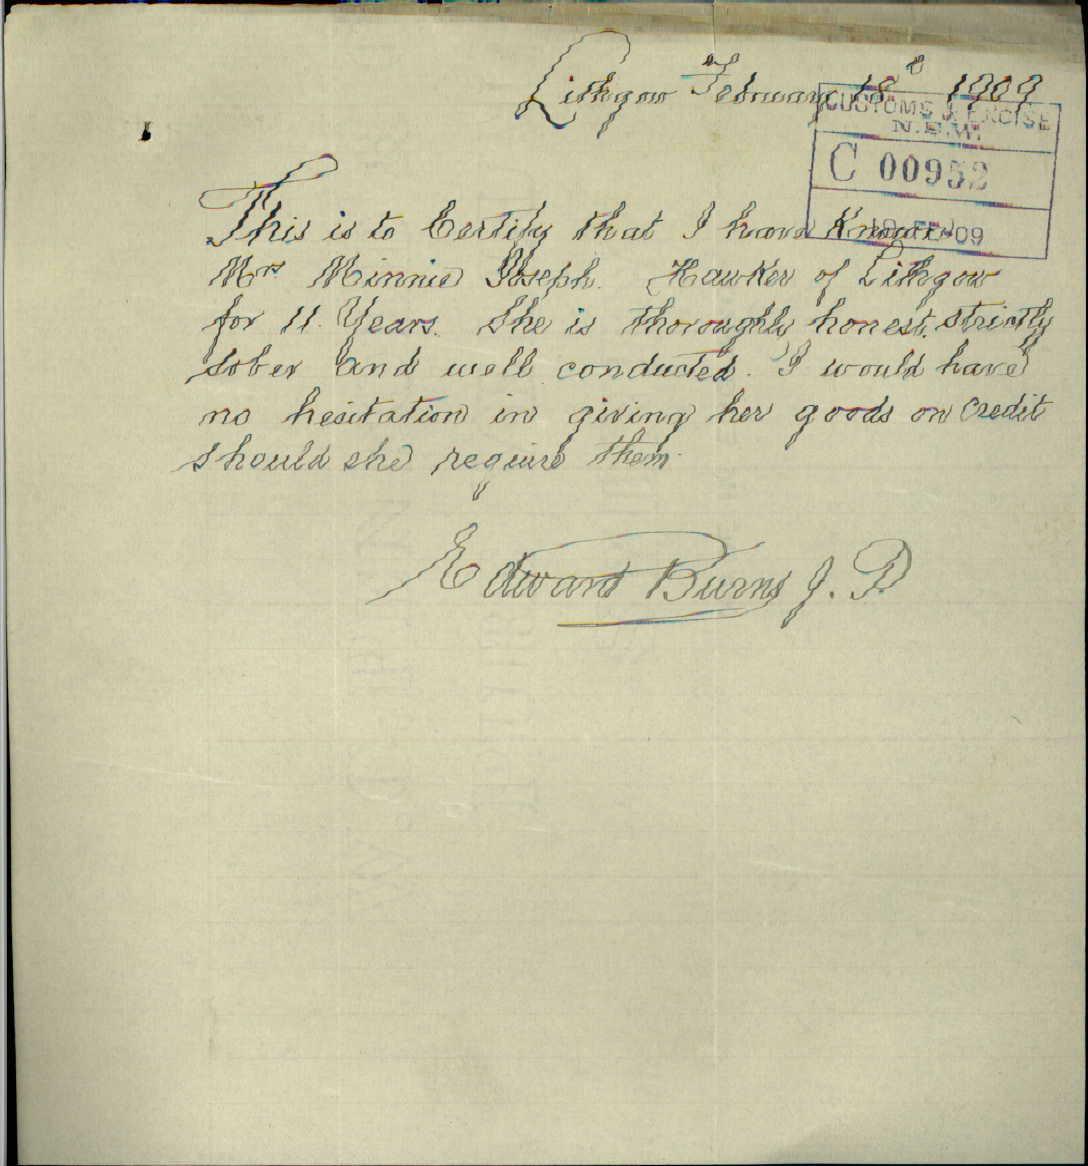 Lithgow February 18th 1909
CUSTOMS & EXCISE
N.S.W.
C 00952
19 FEB 09
This is to Certify that I have Known
Mrs Minnie Joseph. Hawker of Lithgow
for 11 Years. She is thoroughly honest, strictly
sober and well conducted. I would have
no hesitation in giving her goods on credit
should she require them.
Edward Burns J. P